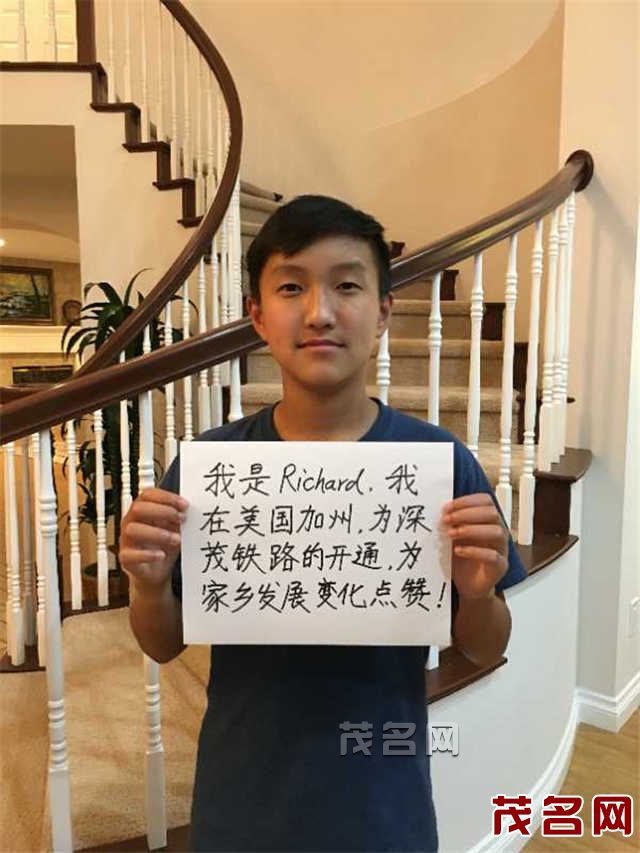 我是Richard.我
在美国加州,为深
茂铁路的开通,为
家乡发展变化点赞!
茂名网
茂名网